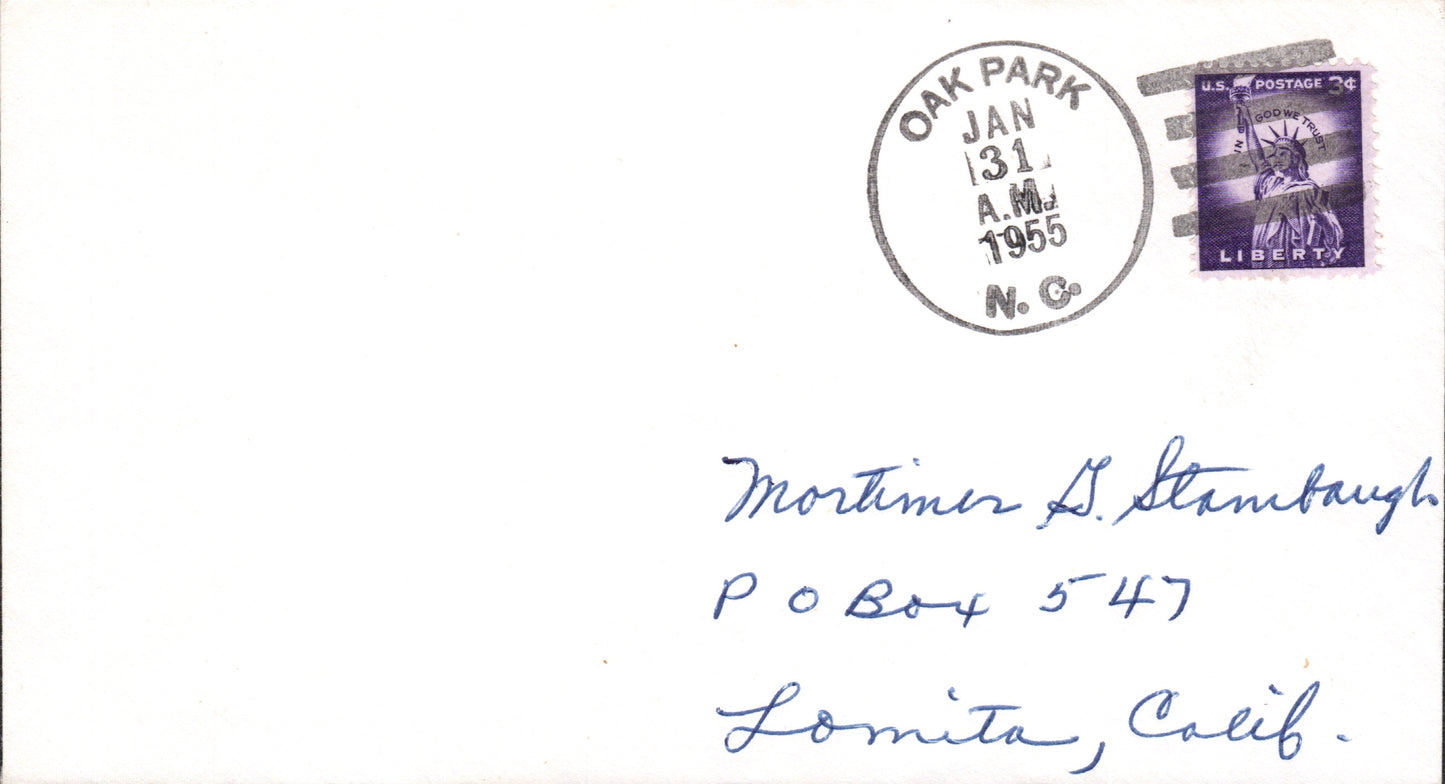 OAK PARK
JAN
31
A.M.
1955
N. C.
U.S. POSTAGE 3¢
IN GOD WE TRUST
LIBERTY
Mortimer G. Stambaugh
P O Box 547
Lomita, Calif.